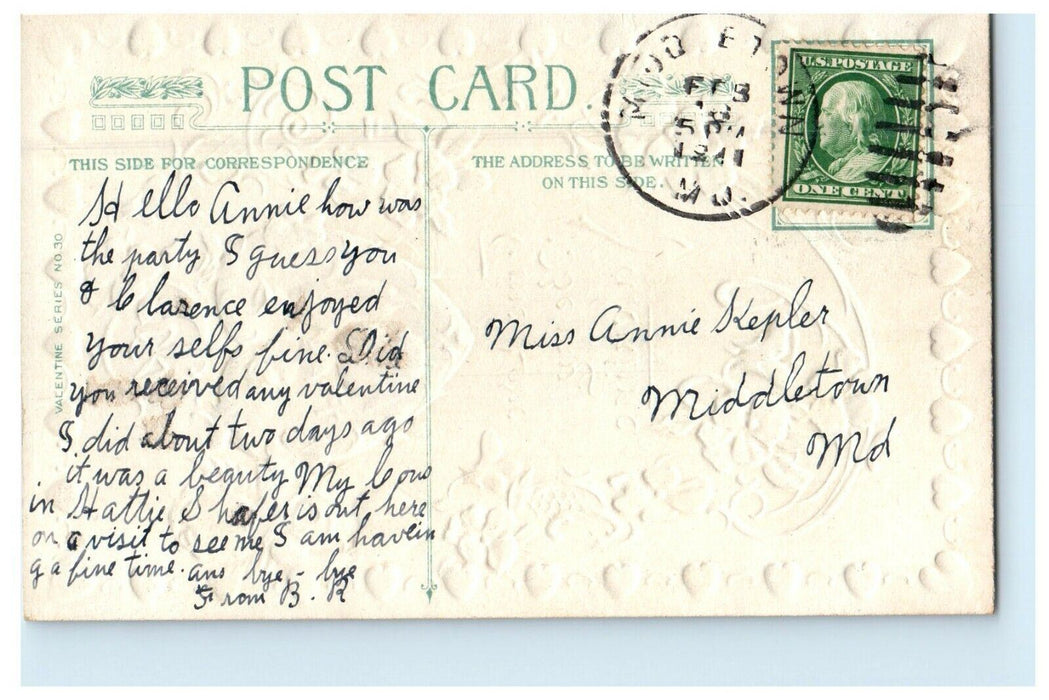 POST CARD.
THIS SIDE FOR CORRESPONDENCE
THE ADDRESS TO BE WRITTEN
ON THIS SIDE.
VALENTINE SERIES NO. 30
U.S. POSTAGE
ONE CENT
FEB
MD.
Hello Annie how was
the party I guess you
& Clarence enjoyed
your selfs fine. Did
you received any valentine
I did about two days ago
it was a beauty My Cous
in Hattie Shafer is out here
on a visit to see me I am havein
g a fine time. ans bye - bye
From B. R
Miss Annie Kepler
Middletown
Md